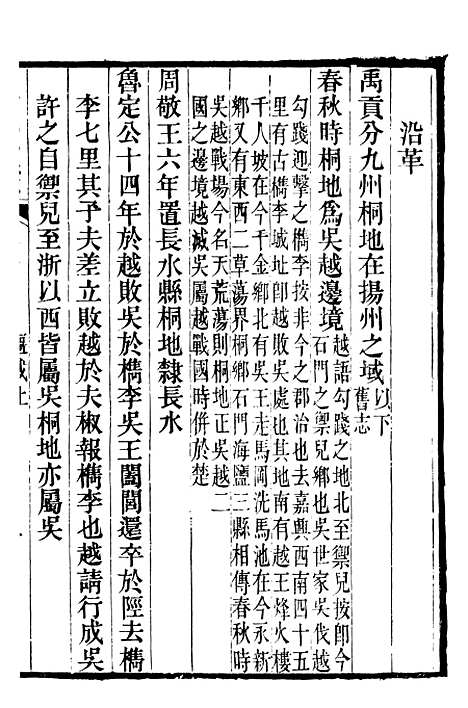 沿革
禹貢分九州桐地在揚州之域以下
舊志
春秋時桐地爲吳越邊境越語勾踐之地北至禦兒按卽今
石門之禦兒鄉也吳世家吳伐越
勾踐迎擊之檇李按非今之郡治也去嘉興西南四十五
里有古檇李城址卽越敗吳處也其地南有越王烽火樓
千人坡在今千金鄉北有吳王走馬岡洗馬池在今永新
鄉又有東西二草蕩界桐鄉石門海鹽三縣相傳春秋時
吳越戰場今名天荒蕩則桐地正吳越二
國之邊境越滅吳屬越戰國時併於楚
周敬王六年置長水縣桐地隸長水
魯定公十四年於越敗吳於檇李吳王闔閭還卒於陘去檇
李七里其子夫差立敗越於夫椒報檇李也越請行成吳
許之自禦兒至浙以西皆屬吳桐地亦屬吳